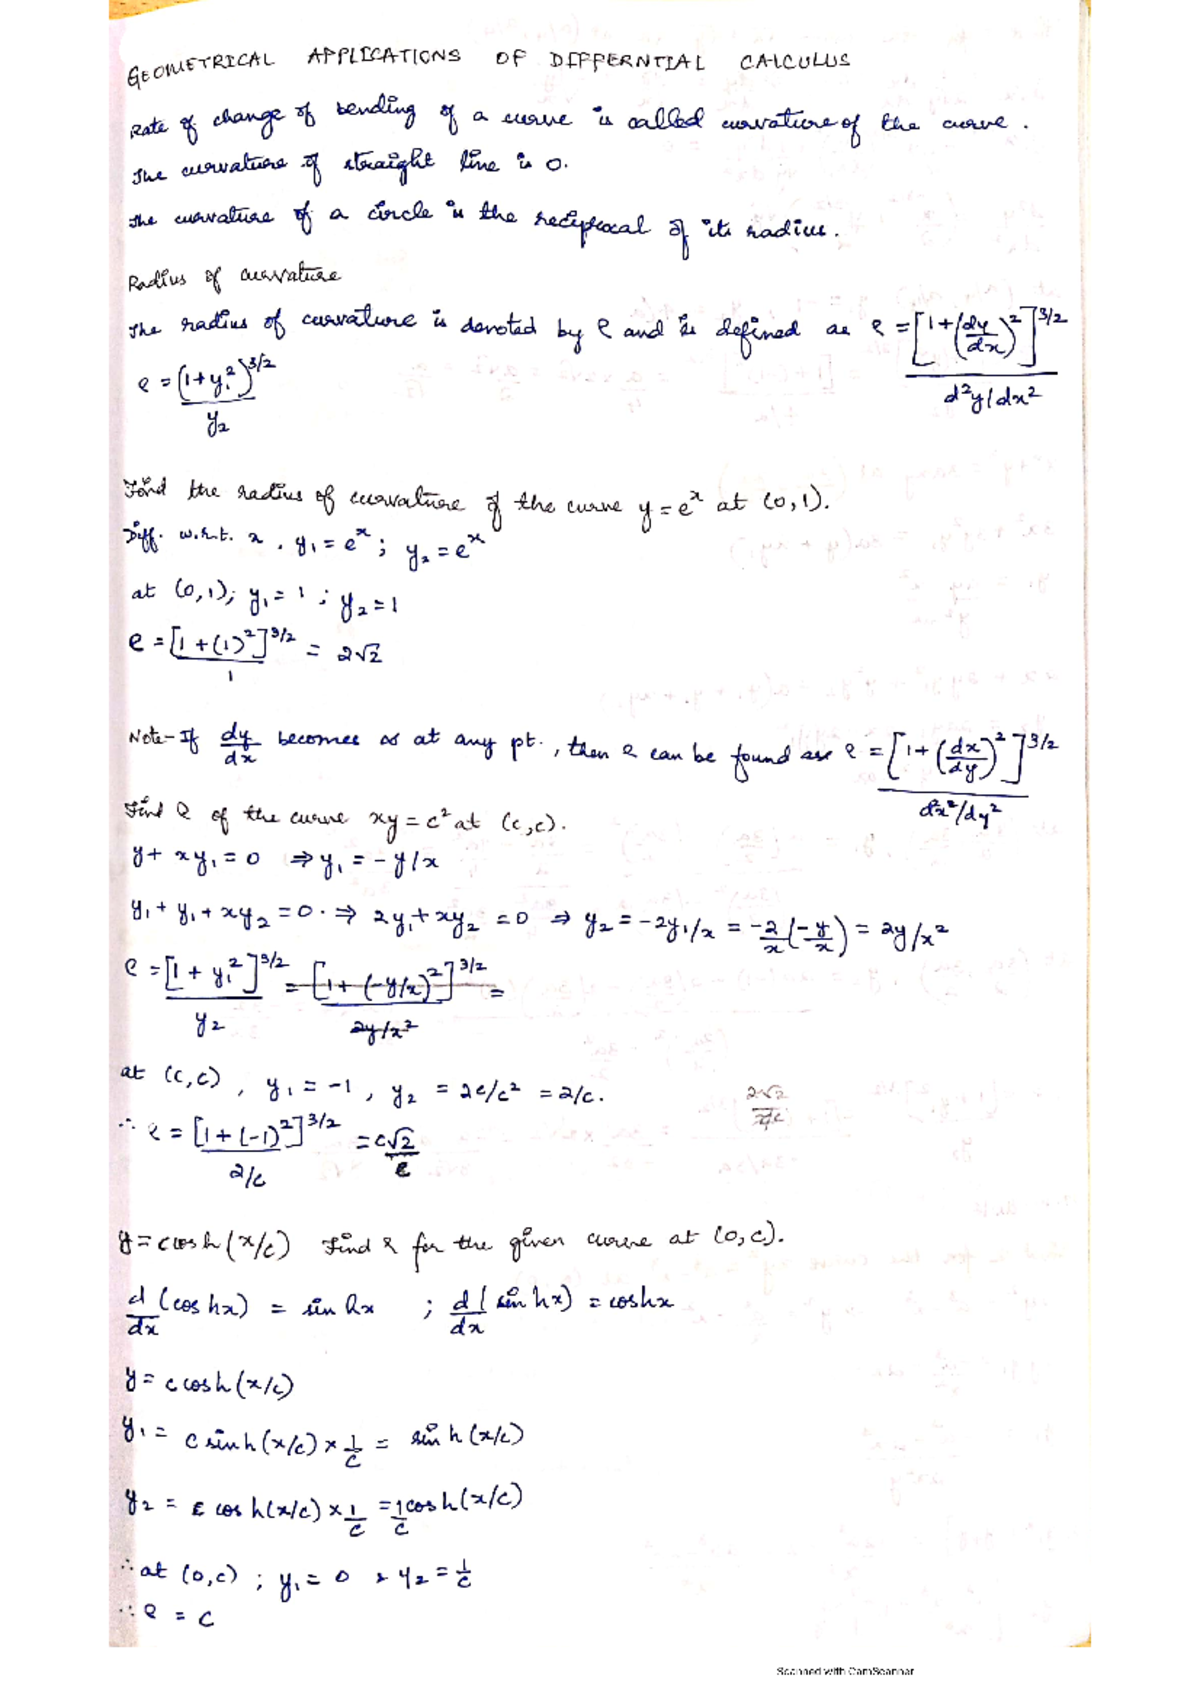 GEOMETRICAL APPLICATIONS OF DIFFERNTIAL CALCULUS
Rate of change of bending of a curve is called curvature of the curve.
The curvature of straight line is 0.
The curvature of a circle is the reciprocal of its radius.
Radius of curvature
The radius of curvature is denoted by ρ and is defined as ρ = [1+(dy/dx)²]^3/2 / d²y/dx²
ρ = (1+y₁²)^3/2 / y₂
Find the radius of curvature of the curve y = e^x at (0,1).
Diff. w.r.t. x, y₁ = e^x ; y₂ = e^x
at (0,1); y₁ = 1 ; y₂ = 1
ρ = [1+(1)²]^3/2 / 1 = 2√2
Note- If dy/dx becomes ∞ at any pt., then ρ can be found as ρ = [1+(dx/dy)²]^3/2 / d²x/dy²
Find ρ of the curve xy = c² at (c,c).
y + xy₁ = 0 ⇒ y₁ = -y/x
y₁ + y₁ + xy₂ = 0 · ⇒ 2y₁ + xy₂ = 0 ⇒ y₂ = -2y₁/x = -2/x (-y/x) = 2y/x²
ρ = [1 + y₁²]^3/2 / y₂ = [1+(-y/x)²]^3/2 / 2y/x² =
at (c,c), y₁ = -1, y₂ = 2c/c² = 2/c.
2√2
∴ ρ = [1+(-1)²]^3/2 / 2/c = c√2
y = c cosh(x/c) Find ρ for the given curve at (0,c).
d/dx (coshx) = sinhx ; d/dx (sinhx) = coshx
y = c cosh(x/c)
y₁ = c sinh(x/c) × 1/c = sinh(x/c)
y₂ = cosh(x/c) × 1/c = 1/c cosh(x/c)
∴ at (0,c) ; y₁ = 0 & y₂ = 1/c
∴ ρ = c
Scanned with CamScanner